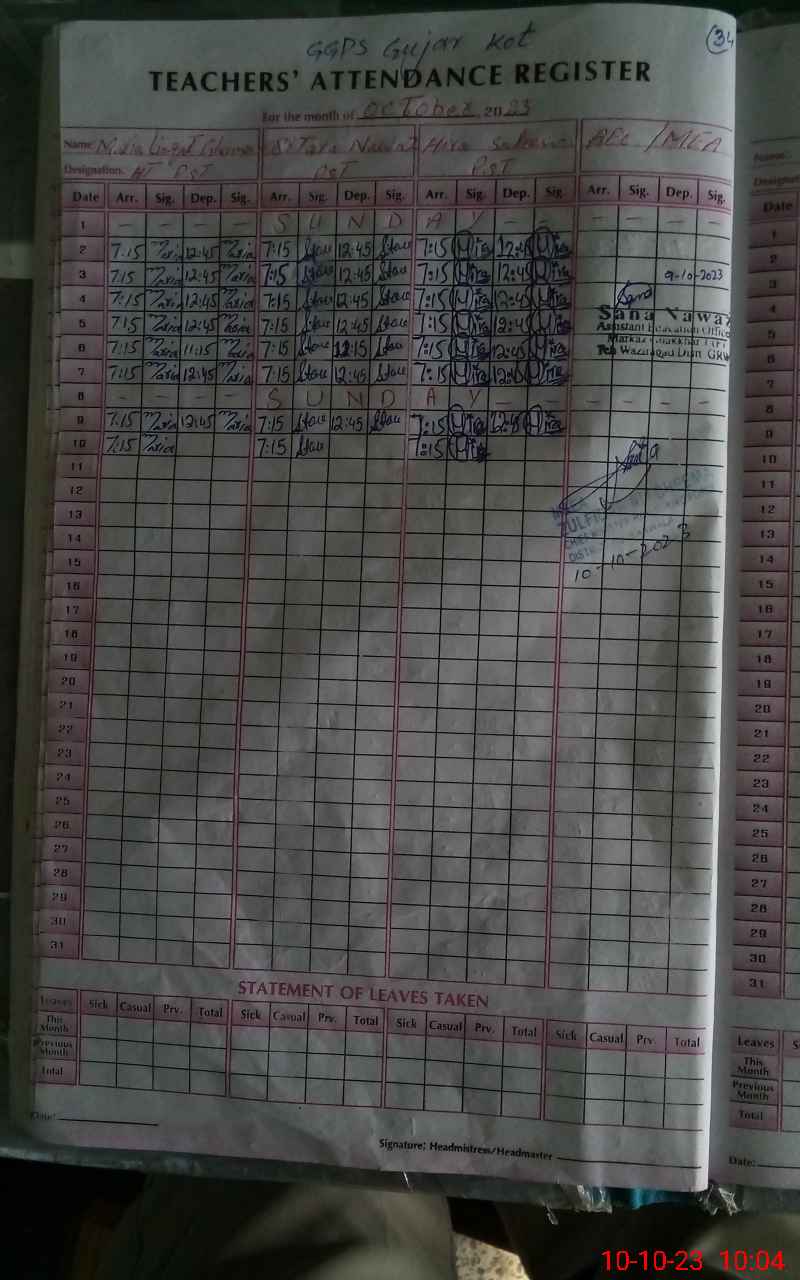 GGPS Gujar Kot
34
TEACHERS' ATTENDANCE REGISTER
For the month of October 2023
Name: Sitara Nawaz Hira AEO / MEA
Designation. HT PST PST PST
Date Arr. Sig. Dep. Sig. Arr. Sig. Dep. Sig. Arr. Sig. Dep. Sig. Arr. Sig. Dep. Sig.
1 — — — — S U N D A Y — — — — — —
2 7:15 Maria 12:45 Maria 7:15 12:45 7:15 Hira 12:45 Hira
3 7:15 Maria 12:45 Maria 7:15 12:45 7:15 Hira 12:45 Hira 9-10-2023
4 7:15 Maria 12:45 Maria 7:15 12:45 7:15 Hira 12:45 Hira
5 7:15 Maria 12:45 Maria 7:15 12:45 7:15 Hira 12:45 Hira Sana Nawaz
Assistant Education Officer
6 7:15 Maria 11:15 Maria 7:15 12:15 7:15 Hira 12:45 Hira Markaz
7 7:15 Maria 12:45 Maria 7:15 12:45 7:15 Hira 12:45 Hira Teh Wazirabad Distt GRW
8 — — — — S U N D A Y — — — — — —
9 7:15 Maria 12:45 Maria 7:15 12:45 7:15 Hira 12:45 Hira
10 7:15 Maria 7:15 7:15 Hira
11
12
13
14
15 10-10-2023
16
17
18
19
20
21
22
23
24
25
26
27
28
29
30
31
STATEMENT OF LEAVES TAKEN
Leaves Sick Casual Prv. Total Sick Casual Prv. Total Sick Casual Prv. Total Sick Casual Prv. Total
This Month
Previous Month
Total
Date:
Signature: Headmistress/Headmaster
Name:
Designat
Date
1
2
3
4
5
6
7
8
9
10
11
12
13
14
15
16
17
18
19
20
21
22
23
24
25
26
27
28
29
30
31
Leaves S
This Month
Previous Month
Total
Date:
10-10-23 10:04